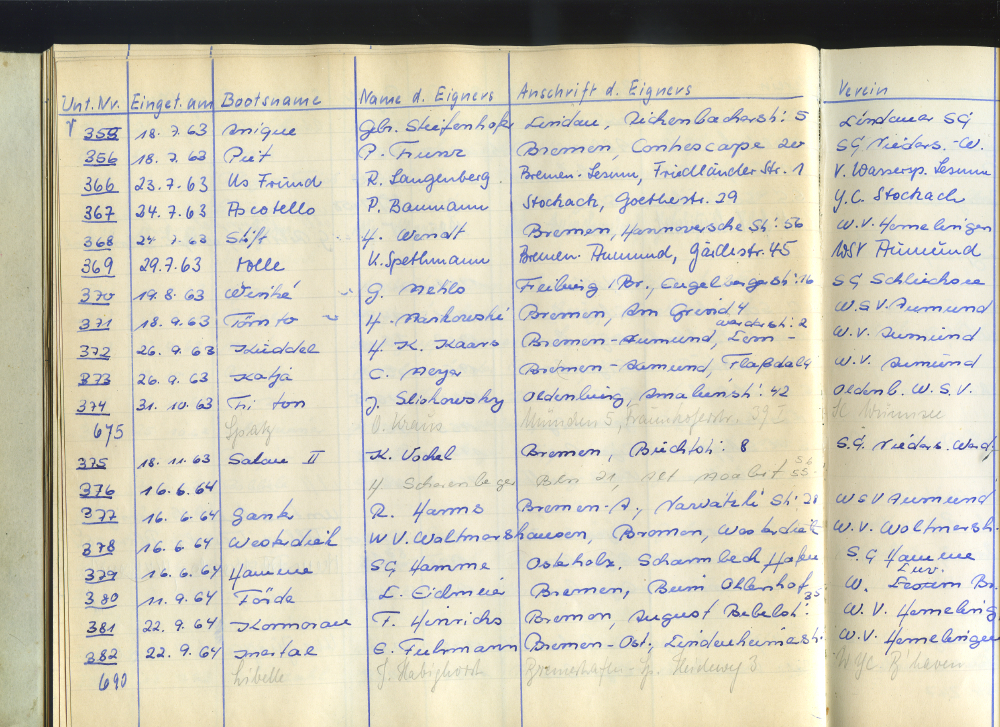 Unt. Nr. Einget. am Bootsname Name d. Eigners Anschrift d. Eigners Verein
355 18.7.63 Unique Gebr. Steifenhofer Lindau, Reichenbacherstr. 5 Lindauer SG
356 18.7.63 Piet P. Bremen, Contrescarpe SG Nieders. W.
366 23.7.63 Us Fründ R. Langenberg Bremen-Lesum, Friedländer Str. 1 V. Wassersp. Lesum
367 24.7.63 Ascotello P. Baumann Stockach, Goethestr. 29 Y.C. Stockach
368 24.7.63 Stift H. Wendt Bremen, Hannoversche Str. 56 W.V. Hemelingen
369 29.7.63 U. Spethmann Bremen-Aumund, 45 WSV Aumund
370 19.8.63 G. Freiburg/Br., 16 SG Schluchsee
371 18.9.63 Törn to H. Markowski Bremen, Am Grind 4 W.S.V. Aumund
372 26.9.63 Kuddel H. K. Kaars Bremen-Aumund, 2 W.V. Aumund
373 26.9.63 Katja C. Meyer Bremen-Aumund, W.V. Aumund
374 31.10.63 Tri ton J. Slishowsky Oldenburg, Amalienstr. 42 Oldenb. W.S.V.
675 Spatz O. Kraus München 5, Fraunhoferstr. 39 I
375 18.11.63 II K. Bremen, 8 S.G. Nieders.
376 16.6.64 H Bln 21, Alt Moabit 55
377 16.6.64 R. Harms Bremen-A., Str. 28 WSV Aumund
378 16.6.64 Weserdeich W V. Woltmershausen, Bremen, W.V. Woltmersh.
379 16.6.64 Hamme SG Hamme Osterholz, Scharmbeck Hafen S G Hamme
380 11.9.64 Förde L. Eidmeier Bremen, Beim Ohlenhof, 35 W. Br.
381 22.9.64 Kormoran F. Hinrichs Bremen, August Bebelstr. W.V. Hemeling
382 22.9.64 E. Fuhrmann Bremen-Ost., W.V. Hemelingen
690 Libelle J. Habighorst Bremerhafen- Heideweg 3 W Yc. B'haven